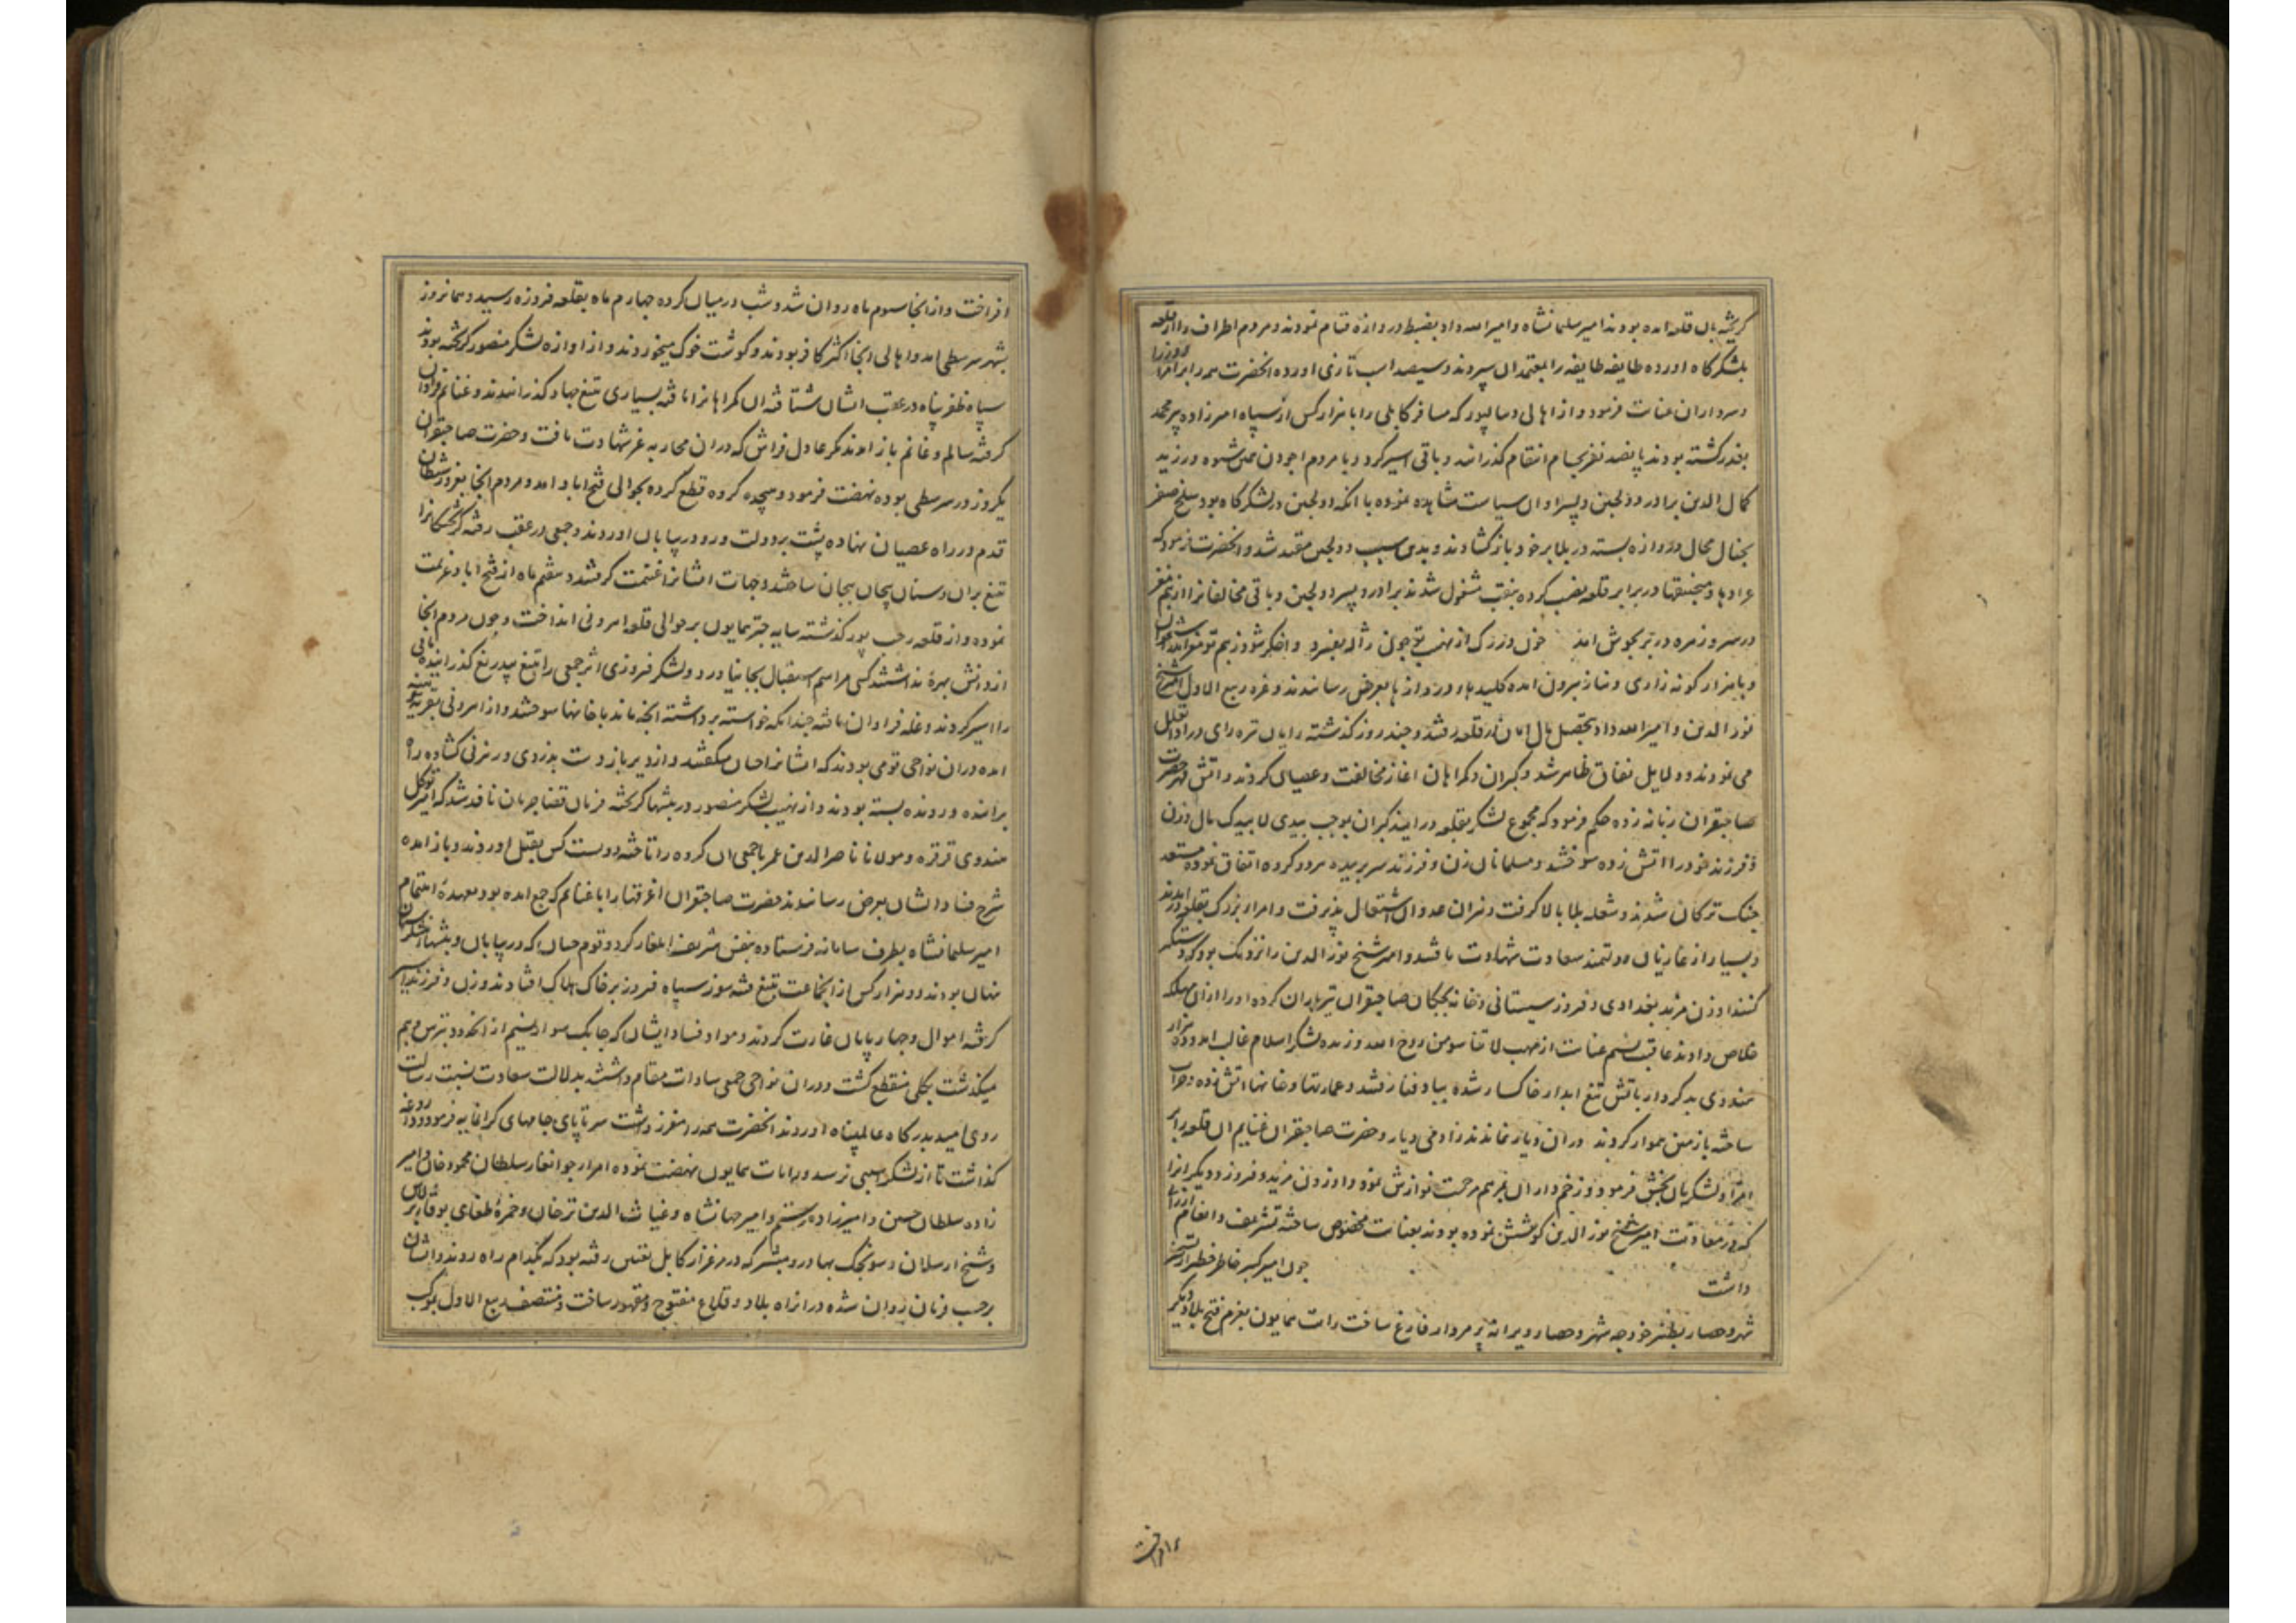 گریخته بان قلعه امده بودند امیر سلیمانشاه و امیر الله داد بضبط دروازه قیام نمودند و مردم اطراف را از قلعه
بلشکرگاه اورده طایفه طایفه را بمعتمدان سپردند و سیصد اسب تازی اورده انحضرت همه را برامرا
و سرداران عنایت فرمود و از اهالی دیبالپور که مسافر کابلی را با هزار کس از سپاه امیرزاده پیر محمد
بغدر کشته بودند پانصد نفر بحسام انتقام گذرانند و باقی اسیر کرد و با مردم اجودن همین شیوه ورزید
کمال الدین برادر دولجین و پسر او ان سیاست مشاهده نموده با انکه دولجین در لشکرگاه بود سلخ صفر
بخیال محال دروازه بسته در بلا بر خود باز کشادند و بدین سبب دولجین مقید شد و انحضرت فرمود که
عرادها و منجنیقها در برابر قلعه نصب کرده بنقب مشغول شدند برادر و پسر دولجین و باقی مخالفانرا از بیم
و با هزار گونه زاری و نیاز بیرون امده کلیدهاء دروازها بعرض رسانیدند و غره ربیع الاول امیر شیخ
نور الدین و امیر الله داد بتحصیل مال امان در قلعه رفتند و چند روز گذشته رایان تیره رای در ادا تعلل
می نمودند و دلایل نفاق ظاهر شد و گبران و گمراهان اغاز مخالفت و عصیان کردند و اتش قهر حضرت
صاحبقران زبانه زده حکم فرمود که مجموع لشکر بقلعه درایند گبران بموجب مال و زن
و فرزند خود را اتش زده سوختند و مسلمانان زن و فرزند سر بریده هر دو گروه اتفاق نموده مستعد
جنک ترکان شدند و شعله بلا بالا گرفت و نیران عدوان اشتعال پذیرفت و امراء بزرگ بقلعه درامدند
و بسیار از غازیان دولتمند سعادت شهادت یافتند و امیر شیخ نور الدین را نزدیک بود که دستگیر
کنند اوزن مزید بغدادی و فیروز سیستانی تیرباران کرده او را از ان مهلکه
خلاص دادند عاقبت نسیم عنایت از مهب لا تیاسو من روح الله وزیده لشکر اسلام غالب امد و ده هزار
هندوی بدکردار باتش تیغ ابدار خاکسار شده بباد فنا رفتند و عمارتها و خانها اتش زده و خراب
ساخته با زمین هموار کردند دران دیار نماندند زادمی دیار و حضرت صاحبقران غنایم ان قلعه را بر
امرا و لشکریان بخش فرمود و زخم داران بمرهم مرحمت نوازش نمود و اوزون مزید و فیروز و دیگرانرا
که در معاونت امیر شیخ نور الدین کوشش نموده بودند بعنایت مخصوص ساخته تشریف و انعام ارزانی
داشت چون امیر کبیر خاطر خطیر از تسخیر
شهر و حصار بطنیر خود چه شهر و حصار ویرانه پر مردار فارغ ساخت رایت همایون بعزم فتح بلاد دیگر
افراخت
افراخت و از انجا سوم ماه روان شد و شب در میان کرده چهارم ماه بقلعه فیروزه رسید و همانروز
بشهر سرسطی امد و اهالی انجا اکثر کافر بودند و گوشت خوک میخوردند و از اوازه لشکر منصور گریخته بودند
سپاه ظفر پناه در عقب ایشان شتافته ان گمراهانرا یافته بسیاری بتیغ جهاد گذرانیدند و غنائم فراوان
گرفته سالم و غانم باز امدند مگر عادل فراش که دران محاربه عز شهادت یافت و حضرت صاحبقران
یکروز در سرسطی بوده نهضت فرمود و هیجده کروه قطع کرده بحوالی فتح اباد امد و مردم انجا بغرور شیطان
قدم در راه عصیان نهاده پشت بر دولت و رو در بیابان اوردند و جمعی در عقب رفته گریختگانرا
تیغ بران و سنان پیچان بیجان ساختند و جهات ایشانرا غنیمت گرفتند و هفتم ماه از فتح اباد عزیمت
نموده و از قلعه رجب پور گذشته سایه چتر همایون بر حوالی قلعه اهرونی انداخت و چون مردم انجا
از دانش بهره نداشتند کسی مراسم استقبال بجا نیاورد و لشکر فیروزی اثر جمعی را بتیغ بیدریغ گذرانیده باقی
را اسیر کردند و غله فراوان یافته چندانکه خواسته برداشته انچه ماند با خانها سوختند و از اهرونی بقریه توهنه
امده دران نواحی قومی بودند که ایشانرا جتان میگفتند و از دیرباز دست بدزدی و رهزنی کشاده راه
بر اینده و رونده بسته بودند و از نهیب لشکر منصور در بیشها گریخته فرمان قضا جریان نافذ شد که امیر توکل
هندوی قرقره و مولانا ناصر الدین عمر با جمعی ان گروه را تاخته دویست کس بقتل اوردند و باز امده
شرح فساد ایشان بعرض رسانیدند حضرت صاحبقران اغرقها را با غنایم که جمع امده بود بعهده اهتمام
امیر سلیمانشاه بطرف سامانه فرستاده بنفس شریف ایلغار کرد و قوم جتان که در بیابان و بیشها
نهان بودند دو هزار کس از انجماعت بتیغ فتنه سوز سپاه فیروز بر خاک هلاک افتادند و زن و فرزند اسیر
گرفته اموال و چهار پایان غارت کردند و مواد فساد ایشان که چابک سوار نسیم از انحدود بترس و بیم
میگذشت بکلی منقطع گشت و دران نواحی جمعی سادات مقام داشتند بدلالت سعادت نسبت رسالت
روی امید بدرگاه عالمپناه اوردند انحضرت همه را معزز داشت سر تا پای جامهای گرانمایه فرمود و داروغه
گذاشت تا از لشکر اسیبی نرسد و رایات همایون نهضت نموده امراء جوانغار سلطان محمود خان و امیر
زاده سلطان حسین و امیرزاده رستم و امیر جهانشاه و غیاث الدین ترخان و حمزه طغای بوقا برلاس
و شیخ ارسلان و سونجک بهادر و مبشر که در مرغزار کابل تعیین رفته بود که بکدام راه روند و ایشان
برحسب فرمان روان شده در انراه بلاد و قلاع مفتوح و مقهور ساخت و منتصف ربیع الاول بموکب